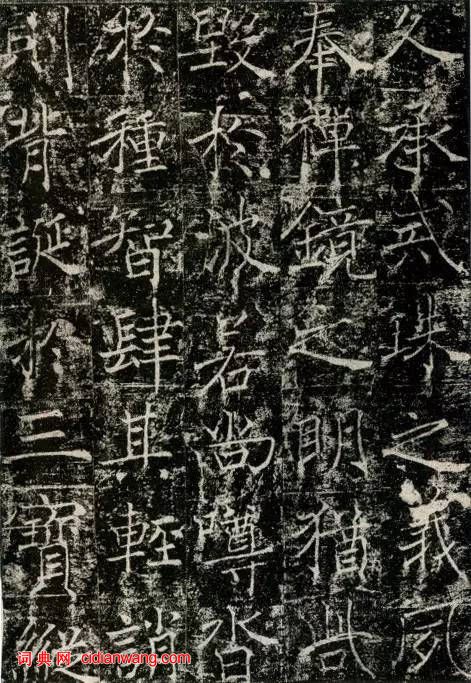 久承戒珠之義夙
奉禪鏡之明猶呰
毀於波若尚噂沓
於種智肆其輕誚
則背誕於三寶縱
词典网 cidianwang.com